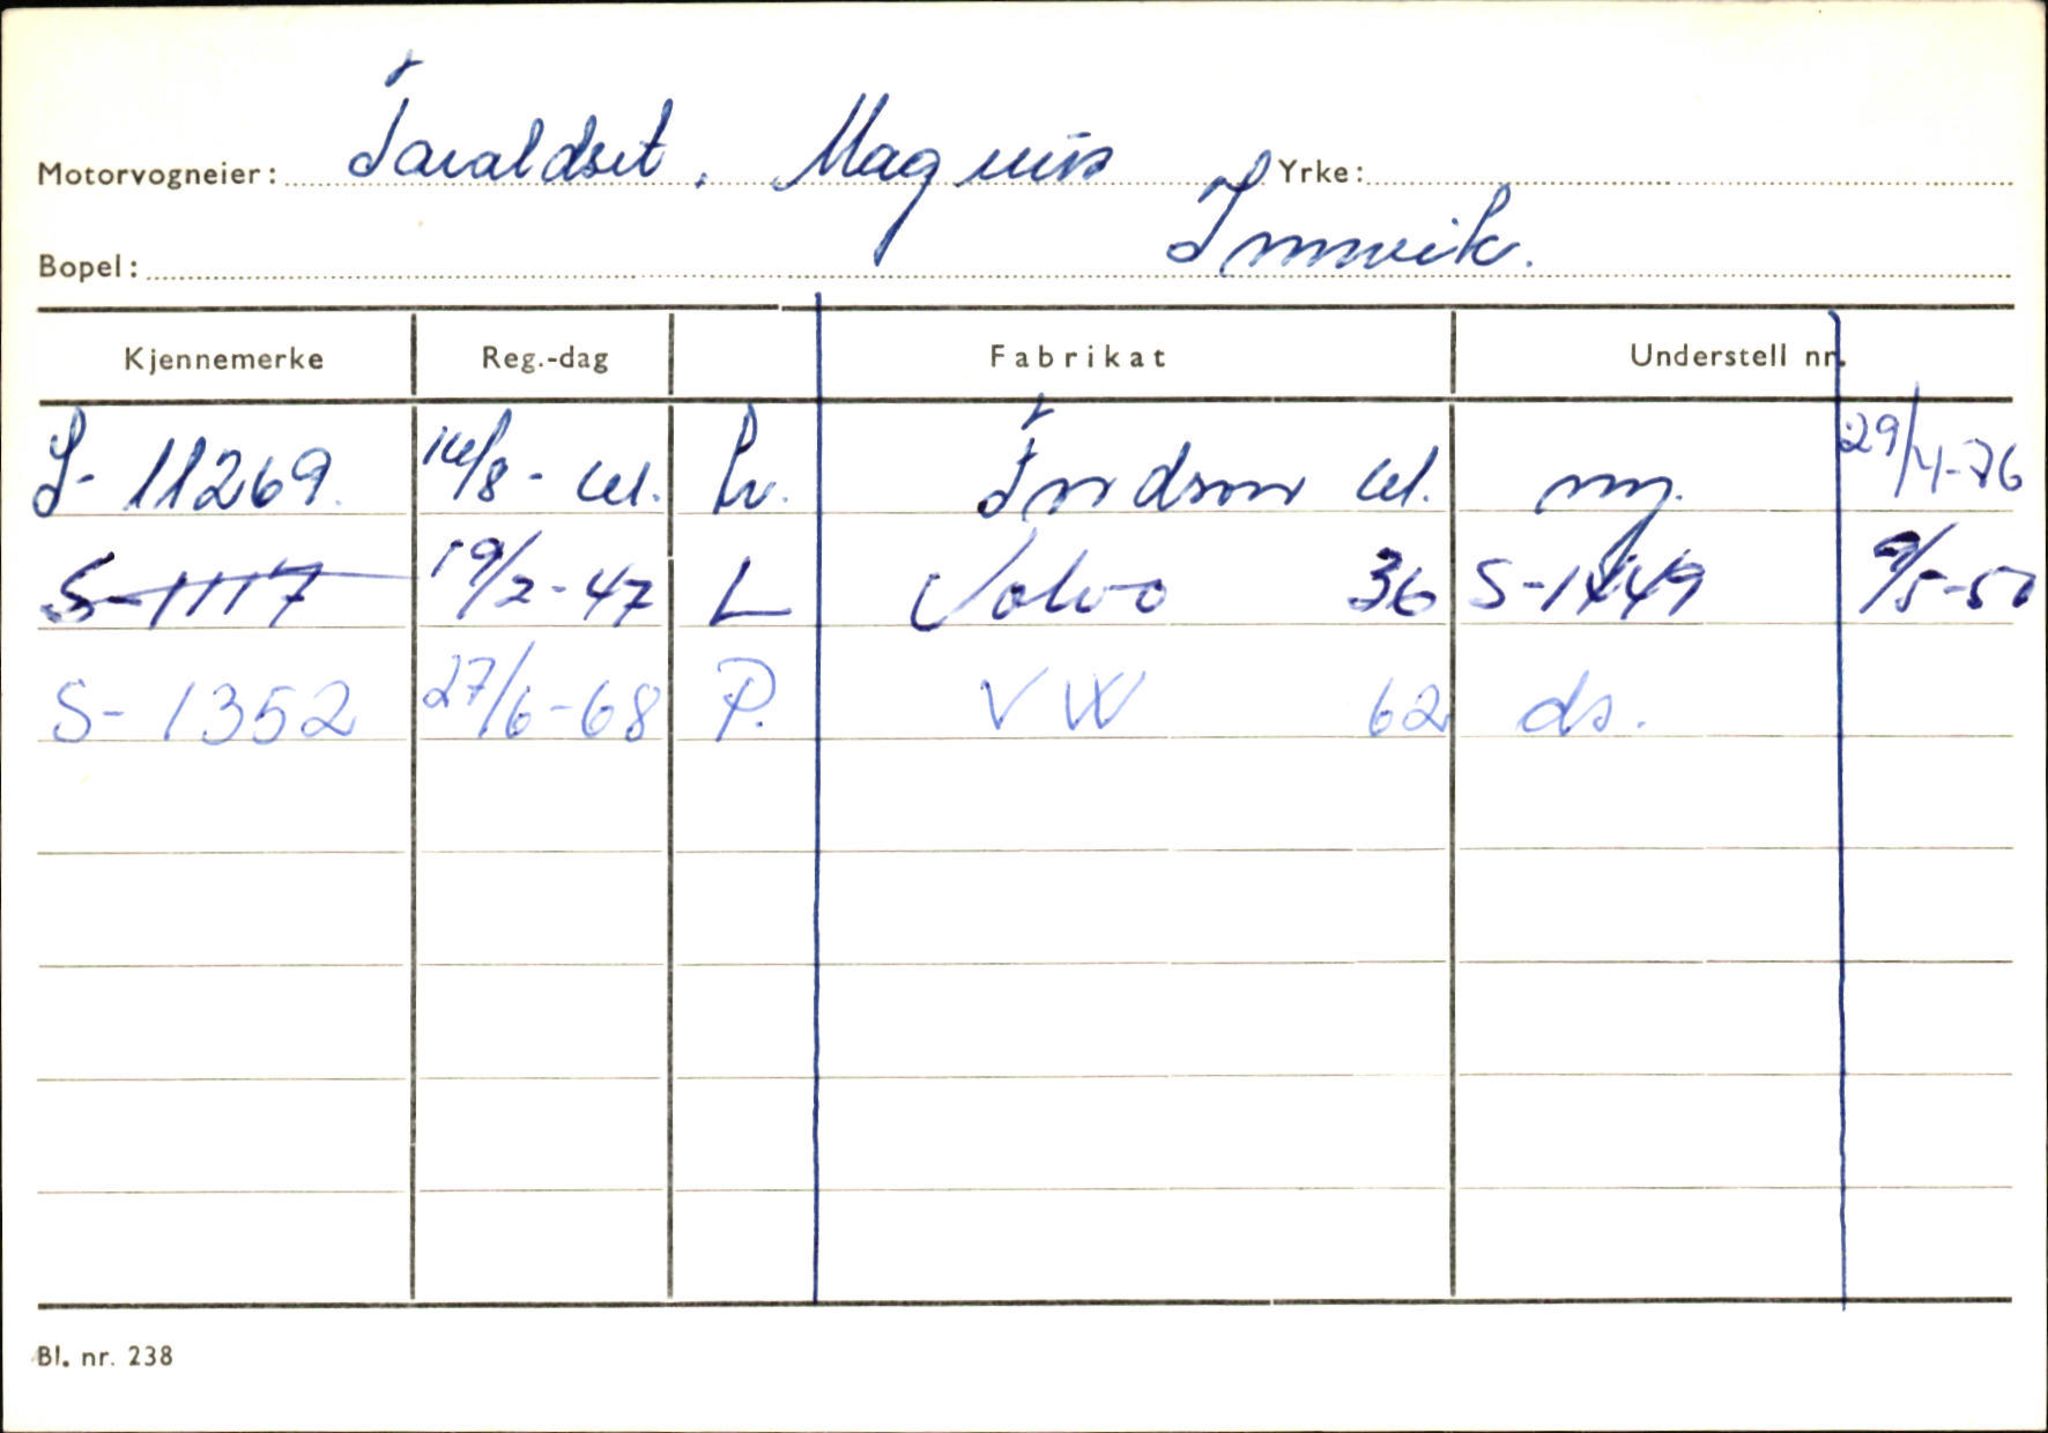 Motorvogneier: Taraldset, Magnus Yrke:
Bopel: Innvik.
Kjennemerke Reg.-dag Fabrikat Understell nr.
S- 11269. 14/8-61. Lv. Fordson 61. ny. 29/4-76
S-1117 19/2-47 L Volvo 36 S-1449 9/5-50
S-1352 27/6-68 P. VW 62 ds.
Bl. nr. 238